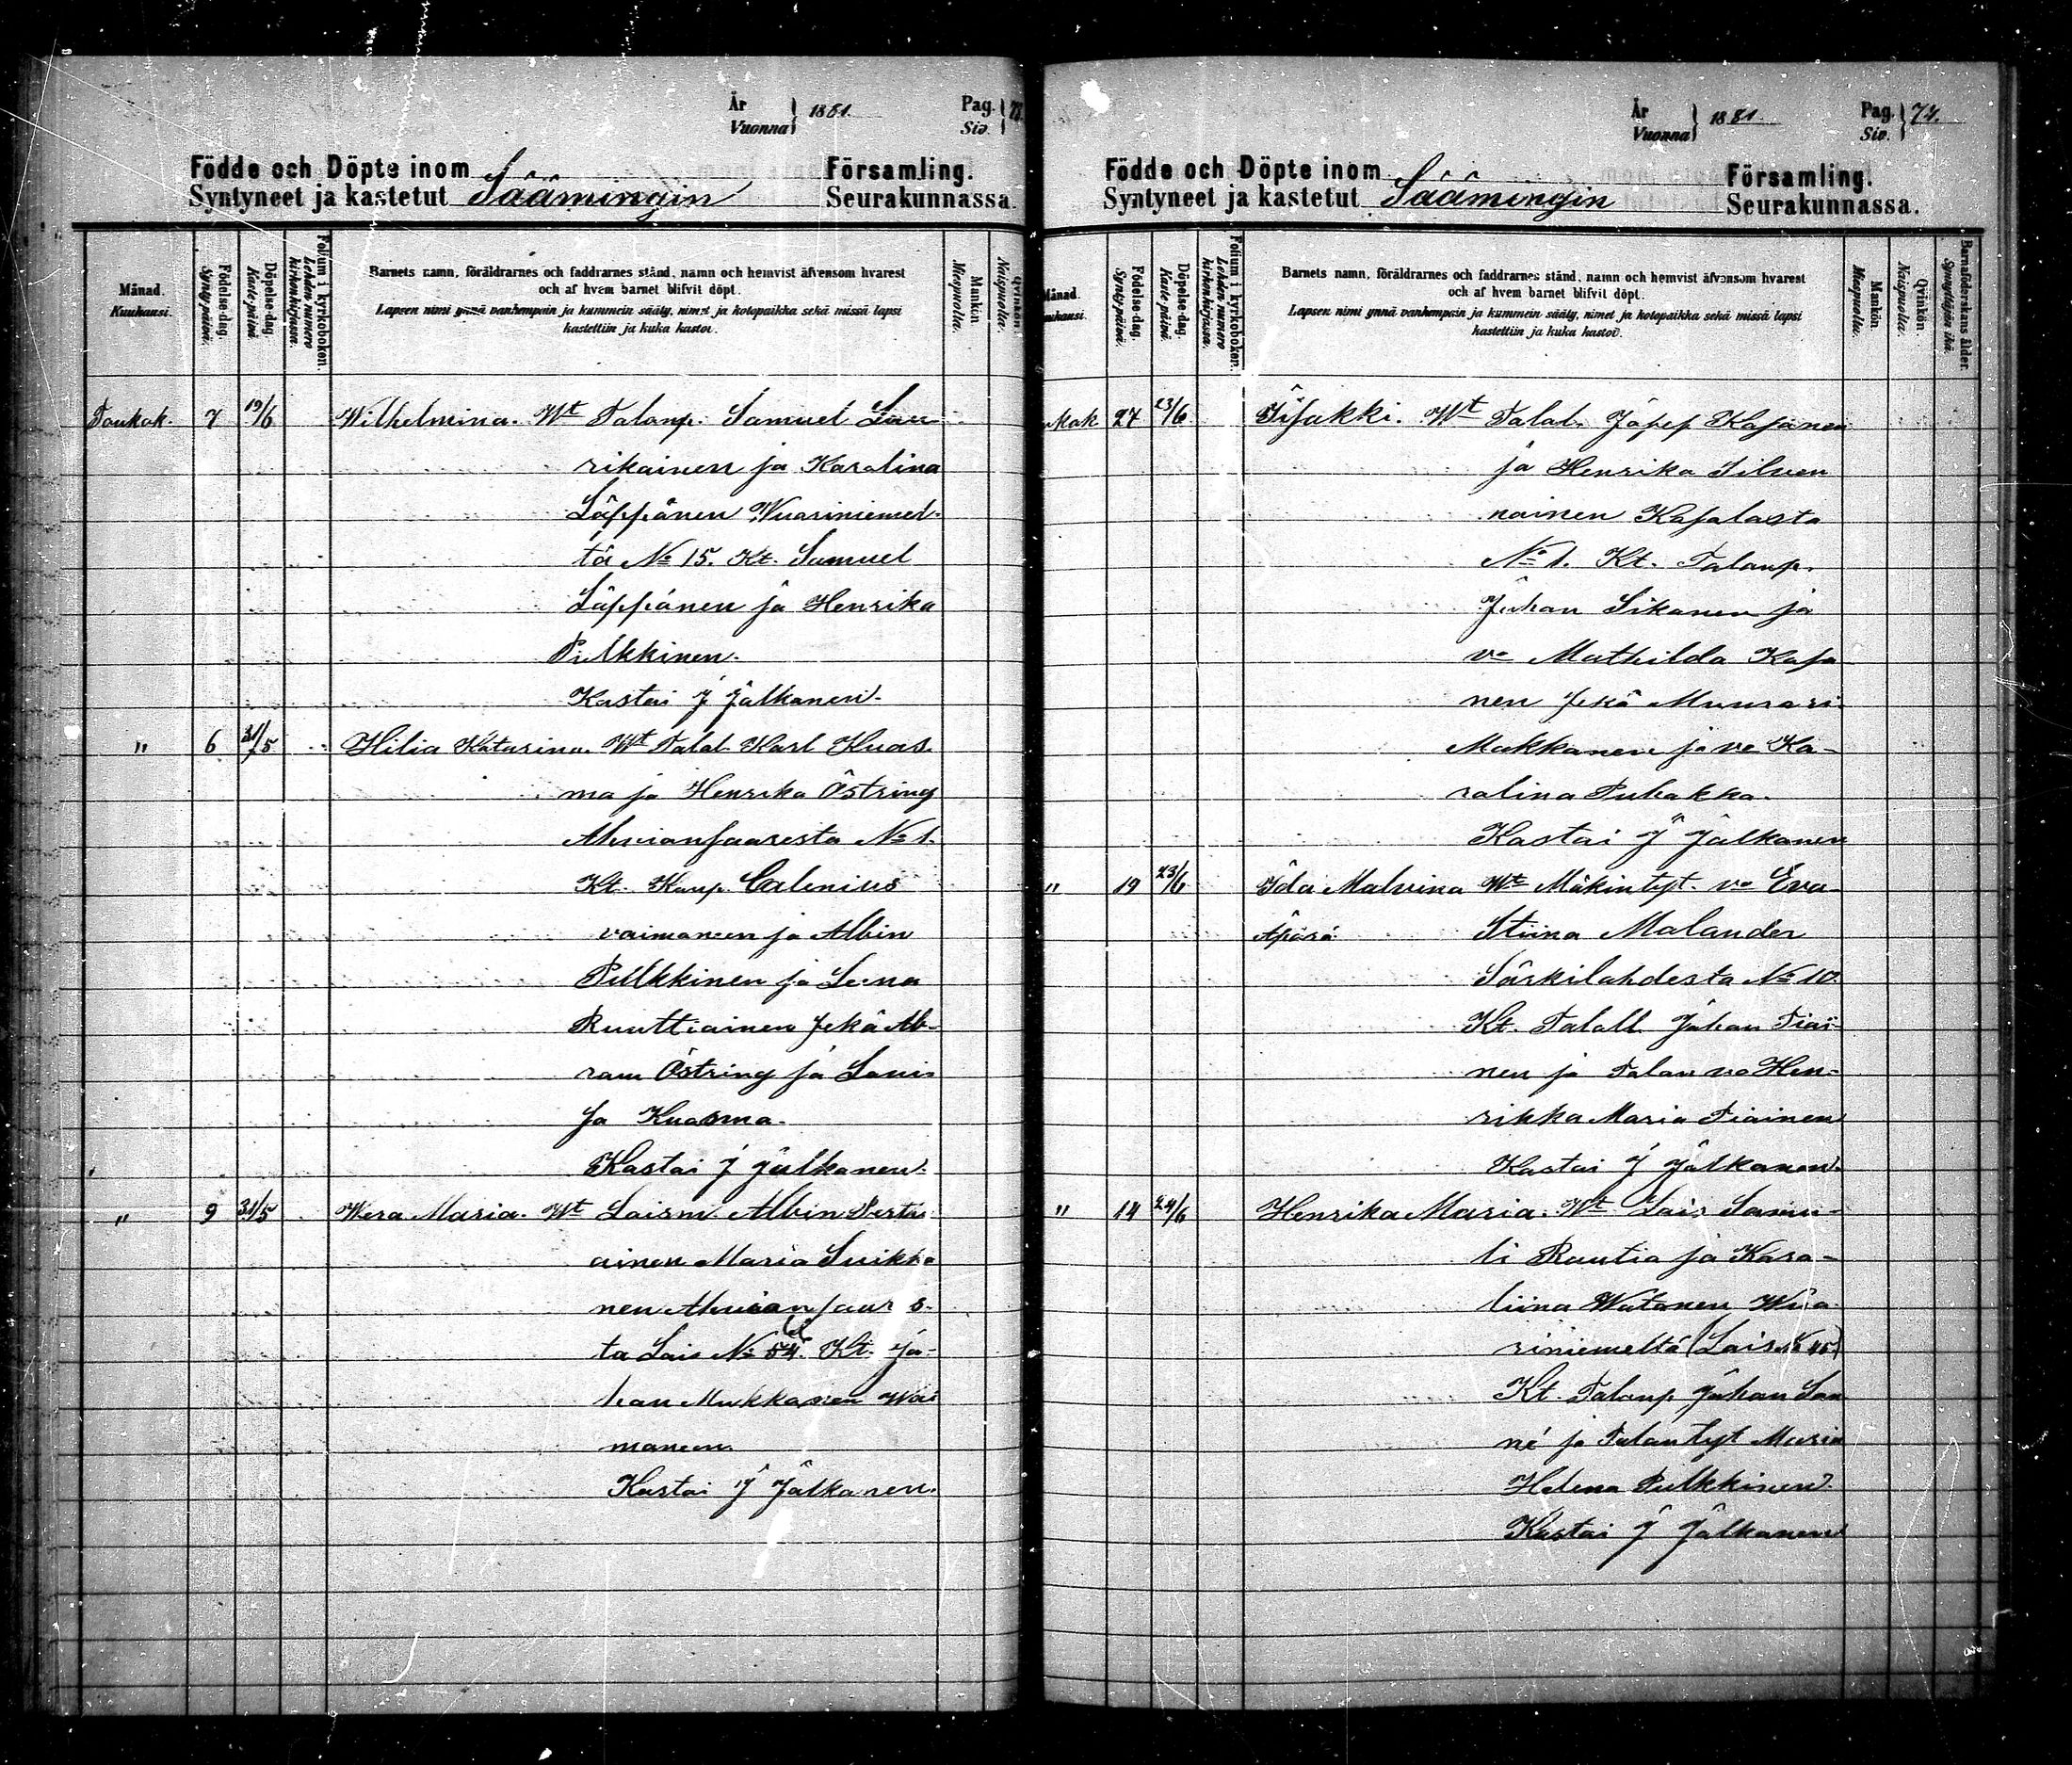 År
Vuonna } 1881.
Pag.
Siv. } 73.
Födde och Döpte inom
Syntyneet ja kastetut Säämingin
Församling.
Seurakunnassa.
Månad.
Kuukausi.
Födelse-dag.
Syntypäivä.
Döpelse-dag.
Kastepäivä
Folium i kyrkoboken.
Lehden numero
kirkonkirjassa.
Barnets namn, föräldrarnes och faddrarnes stånd, namn och hemvist äfvensom hvarest
och af hvem barnet blifvit döpt.
Lapsen nimi ynnä vanhempain ja kummein sääty, nimet ja kotopaikka sekä missä lapsi
kastettiin ja kuka kastoi.
Mankön
Miespuolia.
Qvinkön
Naispuolia.
Toukok. 7 19/6 Wilhelmina. Wt Talonp. Samuel Lau-
rikainen ja Karolina
Läppänen Wuoriniemel-
tä No 15. Kt. Samuel
Läppänen ja Henrika
Pulkkinen.
Kastoi J Jalkanen.
" 6 31/5 Hilia Katarina. Wt Talol. Karl Kuos-
ma ja Henrika Östring
Ahvionsaaresta No 1.
Kt. Kaup. Calenius
vaimoneen ja Albin
Pulkkinen ja Leena
Ruuttiainen sekä Ab-
ram Östring ja Louis
sa Kuosma.
Kastoi J Jalkanen.
" 9 31/5 Wera Maria. Wt Loism. Albin Perta-
ainen Maria Suikka
nen Ahvionsaares-
ta Lois No 54. Kt. Ju-
han Mukkanen wai
moneen
Kastoi J Jalkanen.
År
Vuonna } 1881.
Pag.
Siv. } 74.
Födde och Döpte inom
Syntyneet ja kastetut Säämingin
Församling.
Seurakunnassa.
Månad.
Kuukausi.
Födelse-dag.
Syntypäivä.
Döpelse-dag.
Kastepäivä.
Folium i kyrkoboken.
Lehden numero
kirkonkirjassa.
Barnets namn, föräldrarnes och faddrarnes stånd, namn och hemvist äfvensom hvarest
och af hvem barnet blifvit döpt.
Lapsen nimi ynnä vanhempain ja kummein sääty, nimet ja kotopaikka sekä missä lapsi
kastettiin ja kuka kastoi.
Mankön.
Miespuolia.
Qvinkön.
Naispuolia.
Barnaföderskans ålder.
Synnyttäjän ikä.
ukok 27 23/6 Iisakki. Wt Talol. Josef Kosonen
ja Henrika Silven
noinen Kosolasta
No 1. Kt. Talonp.
Juhan Sikanen ja
vo Mathilda Koso
nen sekä Muurari
Mukkanen ja vo Ka-
rolina Puhakka.
Kastoi J Jalkanen
" 19 23/6 Ida Malvina Wt Mäkintyt. vo Eva
Äpärä Stiina Malander
Särkilahdesta No 10.
Kt. Taloll. Juhan Tiai-
nen ja Talon vo Hen-
rikka Maria Tiainen
Kastoi J Jalkanen.
" 14 24/6 Henrika Maria. Wt Lois Samu-
li Ruutia ja Karo-
liina Watanen Wuo
riniemeltä (Lois No 45)
Kt. Talonp Juhan Lou
né ja Talon tyt Maria
Helena Pulkkinen.
Kastoi J Jalkanen